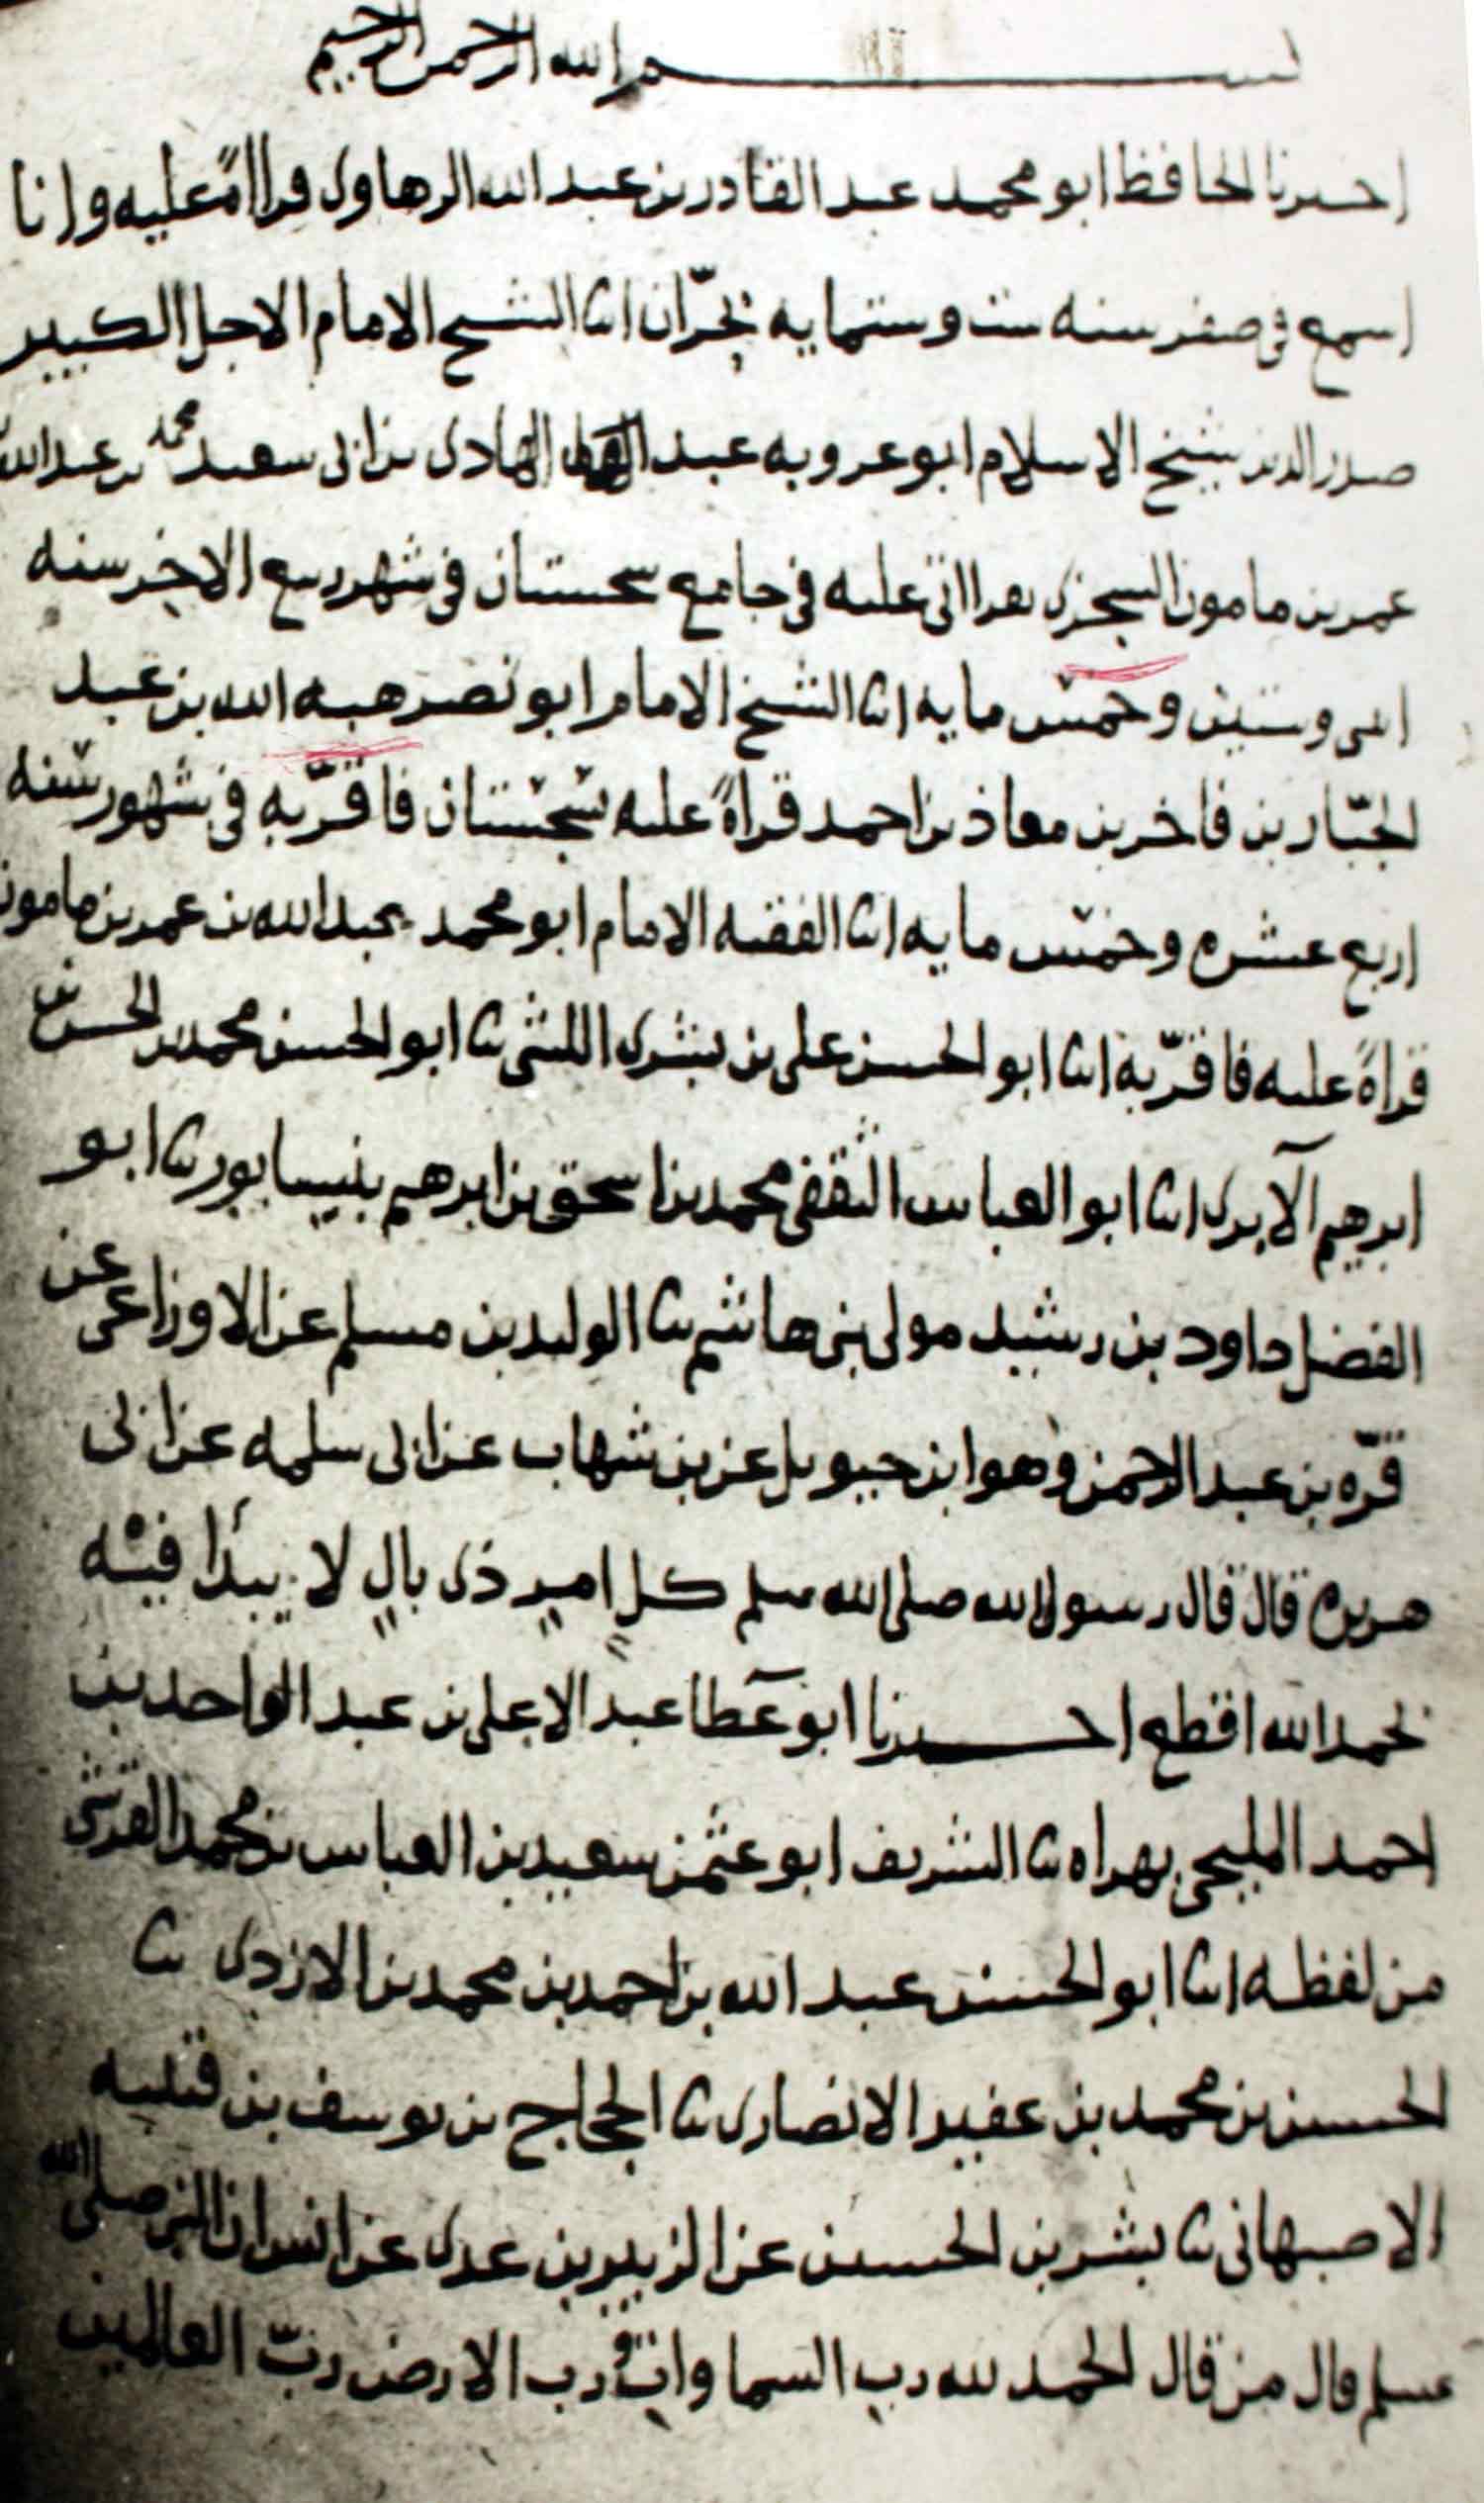 بسم الله الرحمن الرحيم
اخبرنا الحافظ ابو محمد عبد القادر بن عبد الله الرهاوى قراءةً عليه وانا
اسمع فى صفر سنه ست وستمايه بحرّان انا الشيخ الامام الاجل الكبير
صدر الدين شيخ الاسلام ابو عروبه عبد الهادى بن ابى سعيد محمد بن عبد الله
عمر بن مامون السجزى بقراتى عليه فى جامع سجستان فى شهر ربيع الاخر سنه
اثنى وستين وخمس مايه انا الشيخ الامام ابو نصر هبه الله بن عبد
الجبّار بن فاخر بن معاذ بن احمد قراةً عليه بسجستان فاقرّبه فى شهور سنه
اربع عشره وخمس مايه انا الفقيه الامام ابو محمد عبد الله بن عمر بن مامون
قراةً عليه فاقرّبه انا ابو الحسن على بن بشرى الليثى ثنا ابو الحسن محمد بن الحسين بن
ابرهيم الآبرى انا ابو العباس الثقفى محمد بن اسحق بن ابرهيم بنيسابور ثنا ابو
الفضل داود بن رشيد مولى بنى هاشم ثنا الوليد بن مسلم عن الاوزاعى عن
قرّه بن عبد الرحمن وهو ابن حيويل عن بن شهاب عن ابى سلمه عن ابى
هريره قال قال رسول الله صلى الله سلم كل امرٍ ذى بالٍ لا يبدأ فيه
بحمد الله اقطع اخبرنا ابو عطا عبد الاعلى بن عبد الواحد بن
احمد المليحى بهراه ثنا الشريف ابو عثمن سعيد بن العباس بن محمد القرشى
من لفظه انا ابو الحسن عبد الله بن احمد بن محمد بن الازدى ثنا
الحسن بن محمد بن عفير الانصارى ثنا الحجاج بن يوسف بن قتيبه
الاصبهانى ثنا بشر بن الحسين عن الزبير بن عدى عن انس ان النبى صلى الله
عسلم قال من قال الحمد لله رب السماوات ورب الارض ربّ العالمين